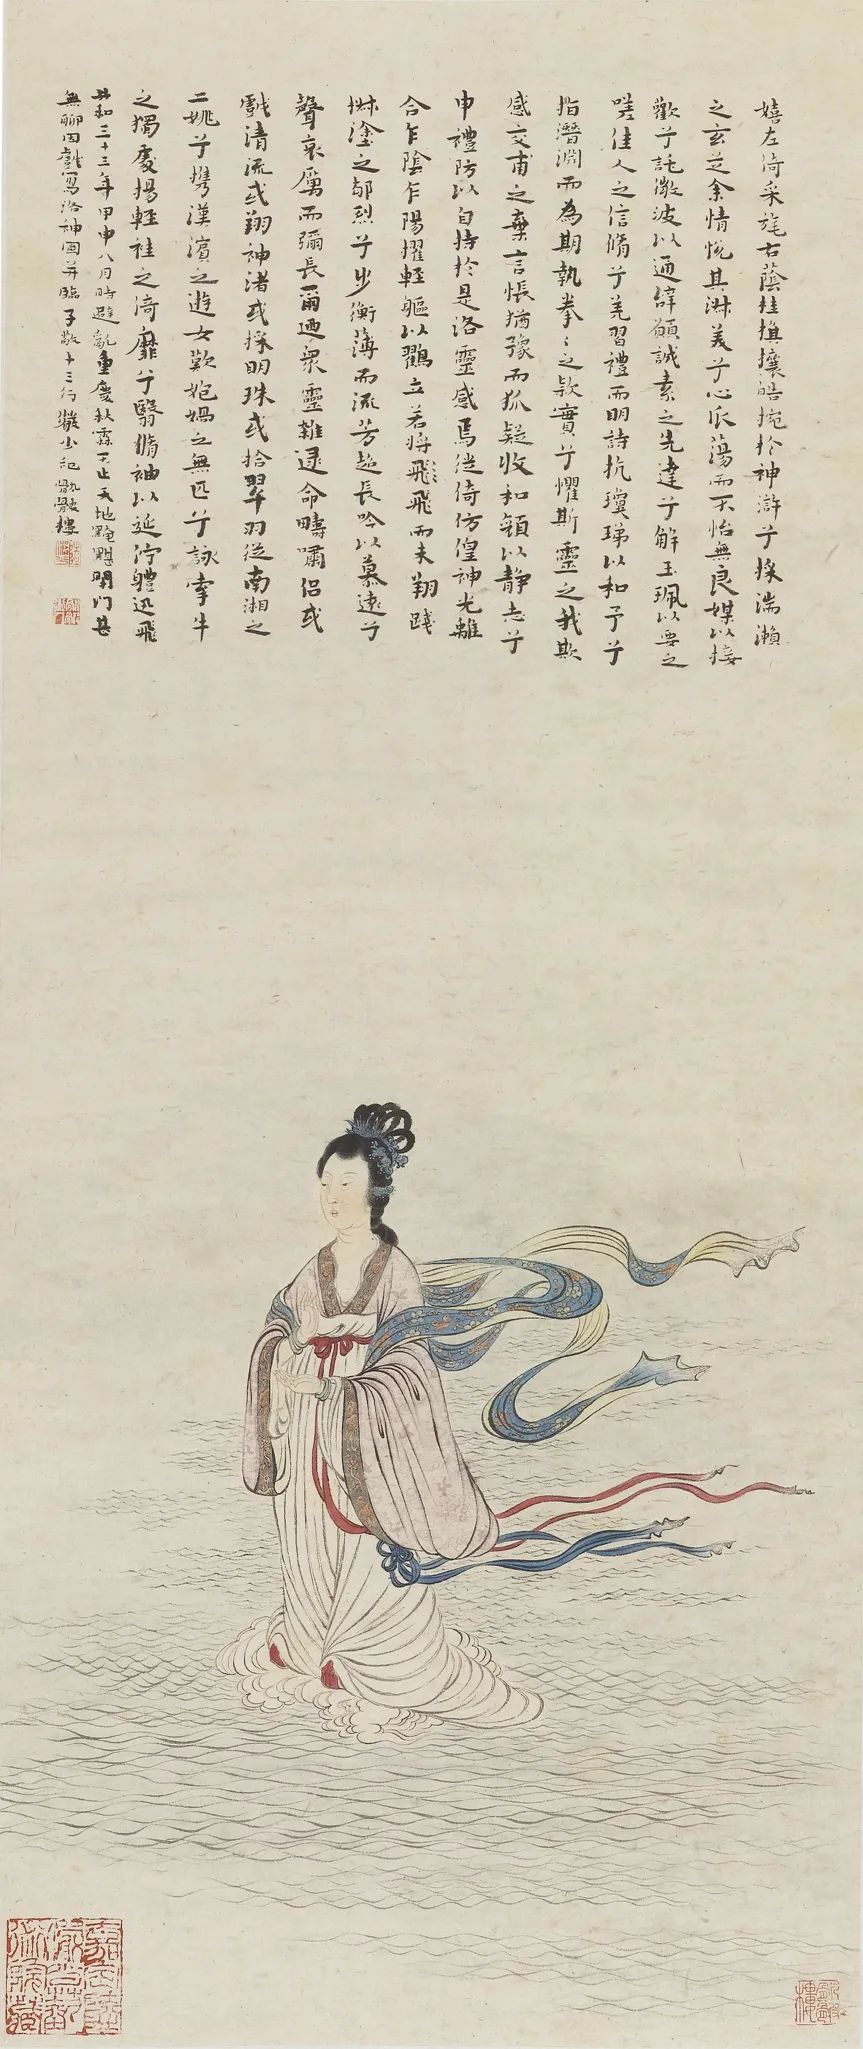 嬉左倚采旄右蔭桂旗攘皓捥於神滸兮採湍瀨
之玄芝余情悅其淋美兮心振蕩而不怡無良媒以接
歡兮託微波以通辭願誠素之先達兮解玉珮以要之
嗟佳人之信脩兮羌習禮而明詩抗瓊珶以和予兮
指潛淵而為期執拳〻之款實兮懼斯靈之我欺
感交甫之棄言悵猶豫而狐疑收和顏以靜志兮
申禮防以自持於是洛靈感焉徙倚仿偟神光離
合乍陰乍陽擢輕軀以鶴立若將飛飛而未翔踐
椒塗之郁烈兮步衡薄而流芳超長吟以慕遠兮
聲哀厲而彌長爾迺眾靈雜遝命疇嘯侶或
戲清流或翔神渚或採明珠或拾翠羽從南湘之
二姚兮携漢濱之遊女歎匏媧之無匹兮詠牽牛
之獨處揚輕袿之倚靡兮翳脩袖以延佇體迅飛
共和三十三年甲申八月時避亂重慶秋霖不止天地黯黮閉門甚
無聊因戲寫洛神圖并臨子敬十三行 少記骩骳樓